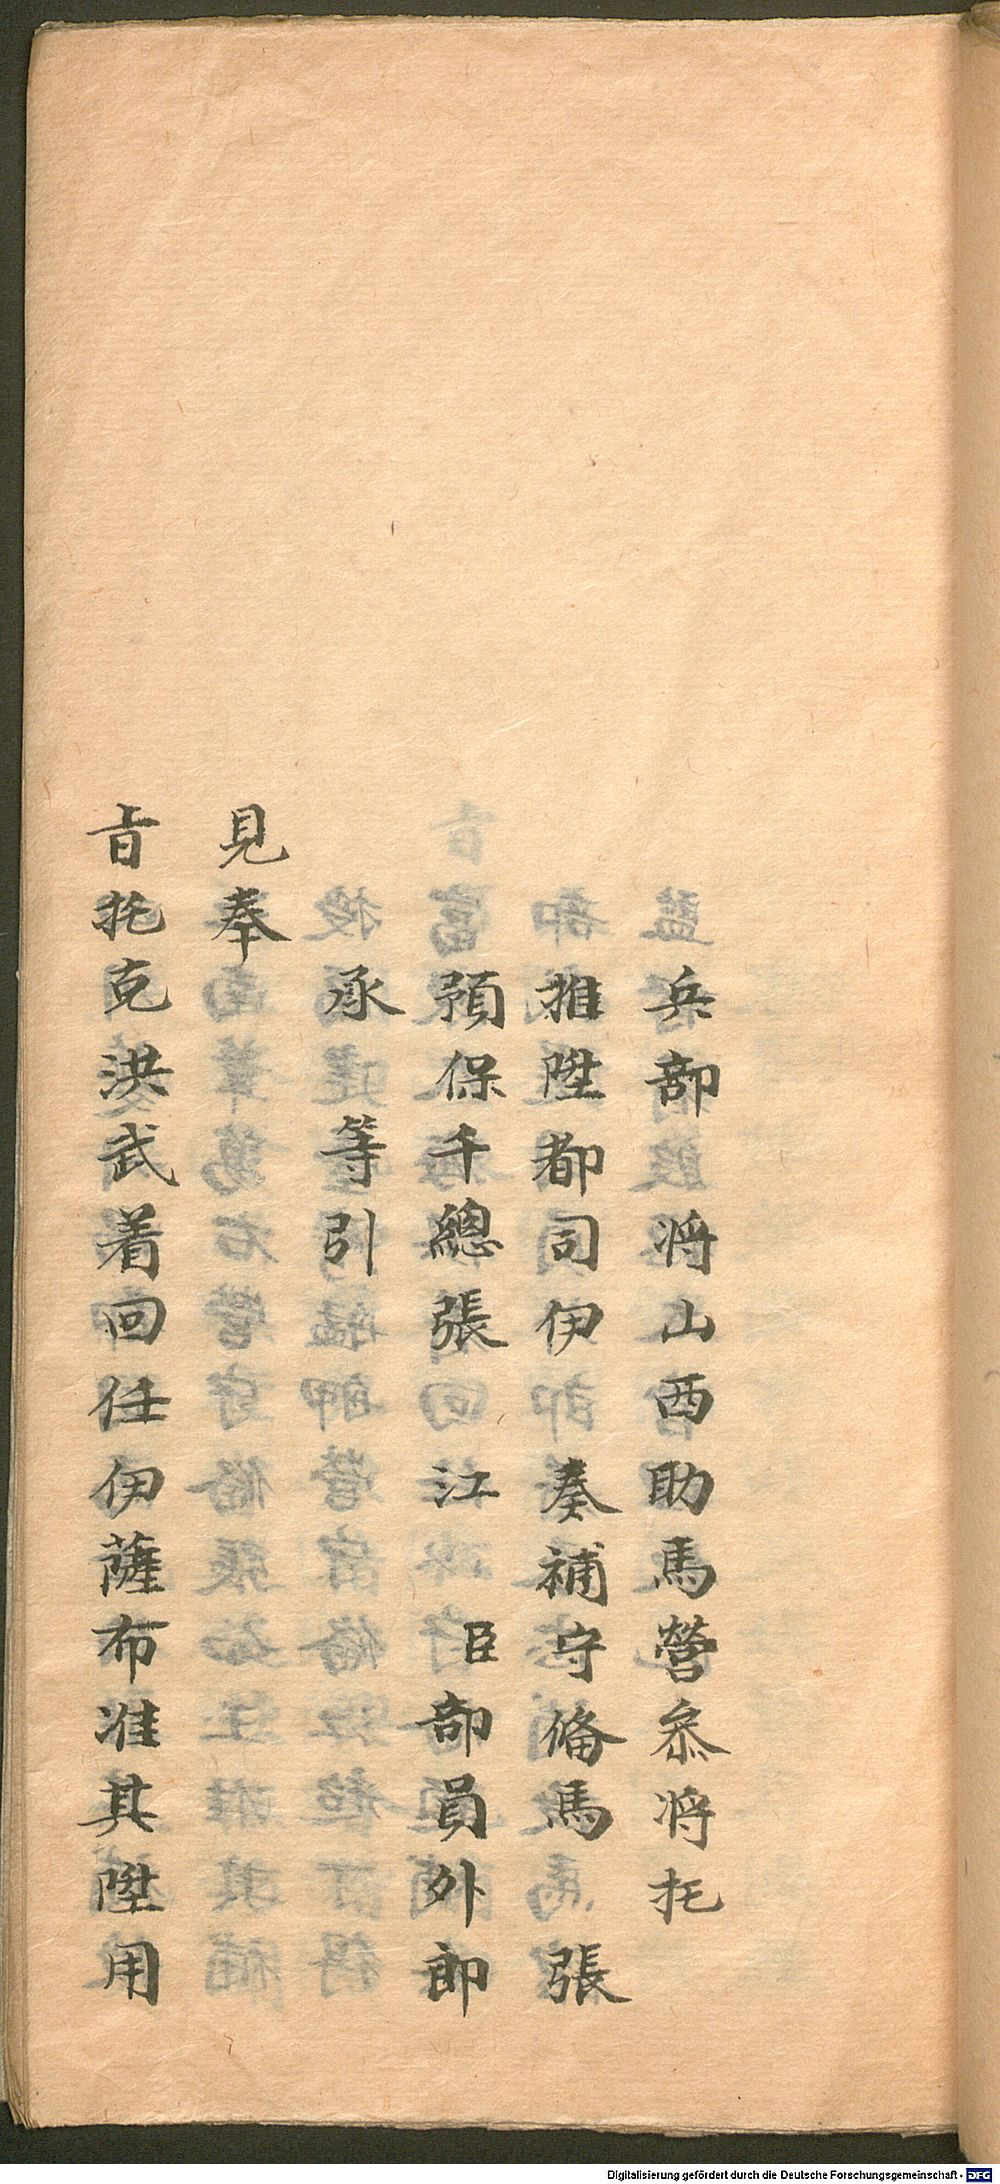 兵部將山西助馬營叅將托
推陞都司伊 奏補守偹馬 張
預保千總張 江 臣部員外郎
承 等引
見奉
旨托克洪武着回任伊薩布准其陞用
Digitalisierung gefördert durch die Deutsche Forschungsgemeinschaft - DFG